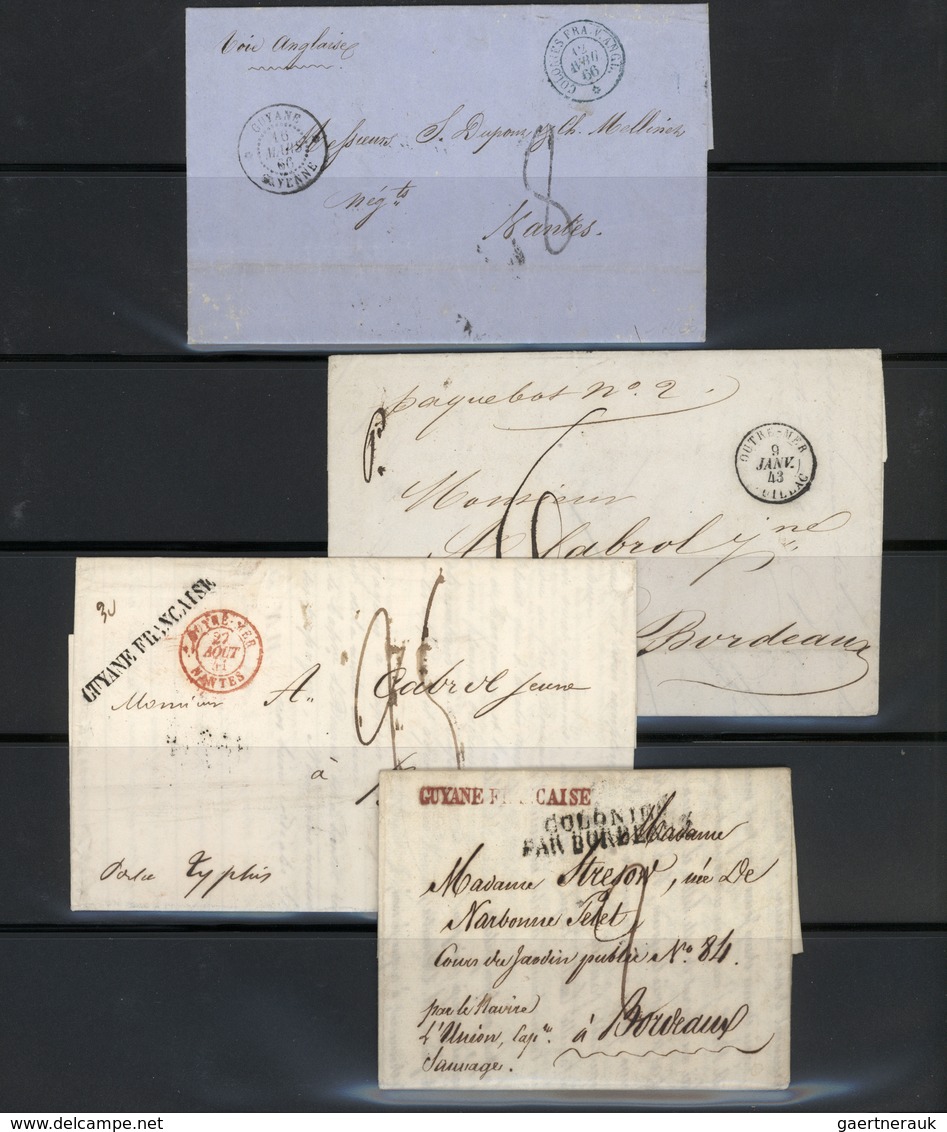 Voie Anglaise
COLONIES FRAN. ANGL.
12
66
GUYANE
16
MARS
66
CAYENNE
Messieurs S. Dupouy & Ch. Mellinet
négts
8
Nantes.
paquebot No. 2.
OUTRE-MER
9
JANV.
43
Monsieur
Cabrol jne
Bordeaux
30
GUYANE FRANCAISE
OUTRE-MER
27
AOUT
NANTES
Monsieur A. Cabrol Jeune
à
GUYANE FRANCAISE
COLONIES
PAR BORDEAUX
Madame
Madame Stregon, née De
Narbonne Pelet
Cours du Jardin public No. 84.
par le Navire
L'Union, Cape. à Bordeaux
Sauvage.
gaertnerauk